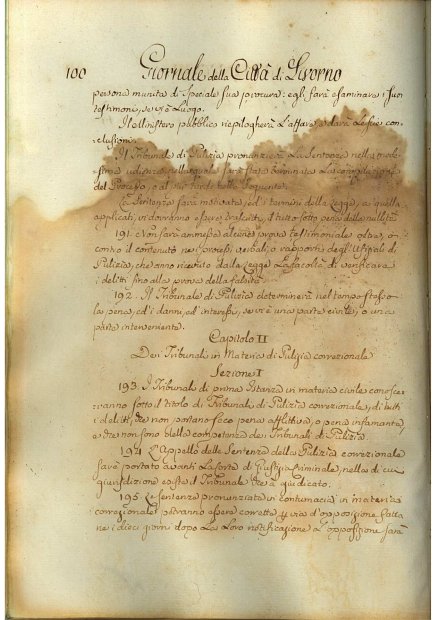 100 Giornale della Città di Livorno
persona munita di speciale sua procura: egli farà esaminare i suoi
testimoni, se vi è Luogo.
Il Ministero pubblico riepilogherà L'affare, e darà Le sue con-
clusioni.
Il Tribunale di Pulizia pronunzierà La Sentenza nella mede-
sima udienza nella quale sarà stata terminata La compilazione
del Processo, e al più tardi nella seguente.
La Sentenza sarà motivata, ed i termini della Legge, in quella
applicati, vi dovranno essere trascritti, il tutto sotto pena della nullità
191. Non sarà ammessa alcuna prova testimoniale oltre, o
contro il contenuto nei processi verbali, o rapporti degl'Ufiziali di
Pulizia, che anno ricevuto dalla Legge La facoltà di verificare
i delitti fino alla prova della falsità.
192. Il Tribunale di Pulizia determinerà nel tempo stesso
la pena, ed i danni, ed interessi, se vi è una parte civile, o una
parte interveniente.
Capitolo II
Dei Tribunali in Materia di Pulizia correzionale
Sezione I
193. I Tribunali di prima Istanza in materia civile conosce-
ranno sotto il titolo di Tribunali di Pulizia correzionale, di tutti
i delitti, che non portano seco pena afflittiva, o pena infamante,
e che non sono della competenza dei Tribunali di Pulizia
194. L'Appello delle Sentenze della Pulizia correzionale
sarà portato avanti La Corte di Giustizia Criminale, nella di cui
giurisdizione esiste il Tribunale che à giudicato.
195. Le Sentenze pronunziate in contumacia in materia
correzionale potranno essere corrette per via d'opposizione fatta
ne i dieci giorni dopo La Loro notificazione. L'opposizione sarà